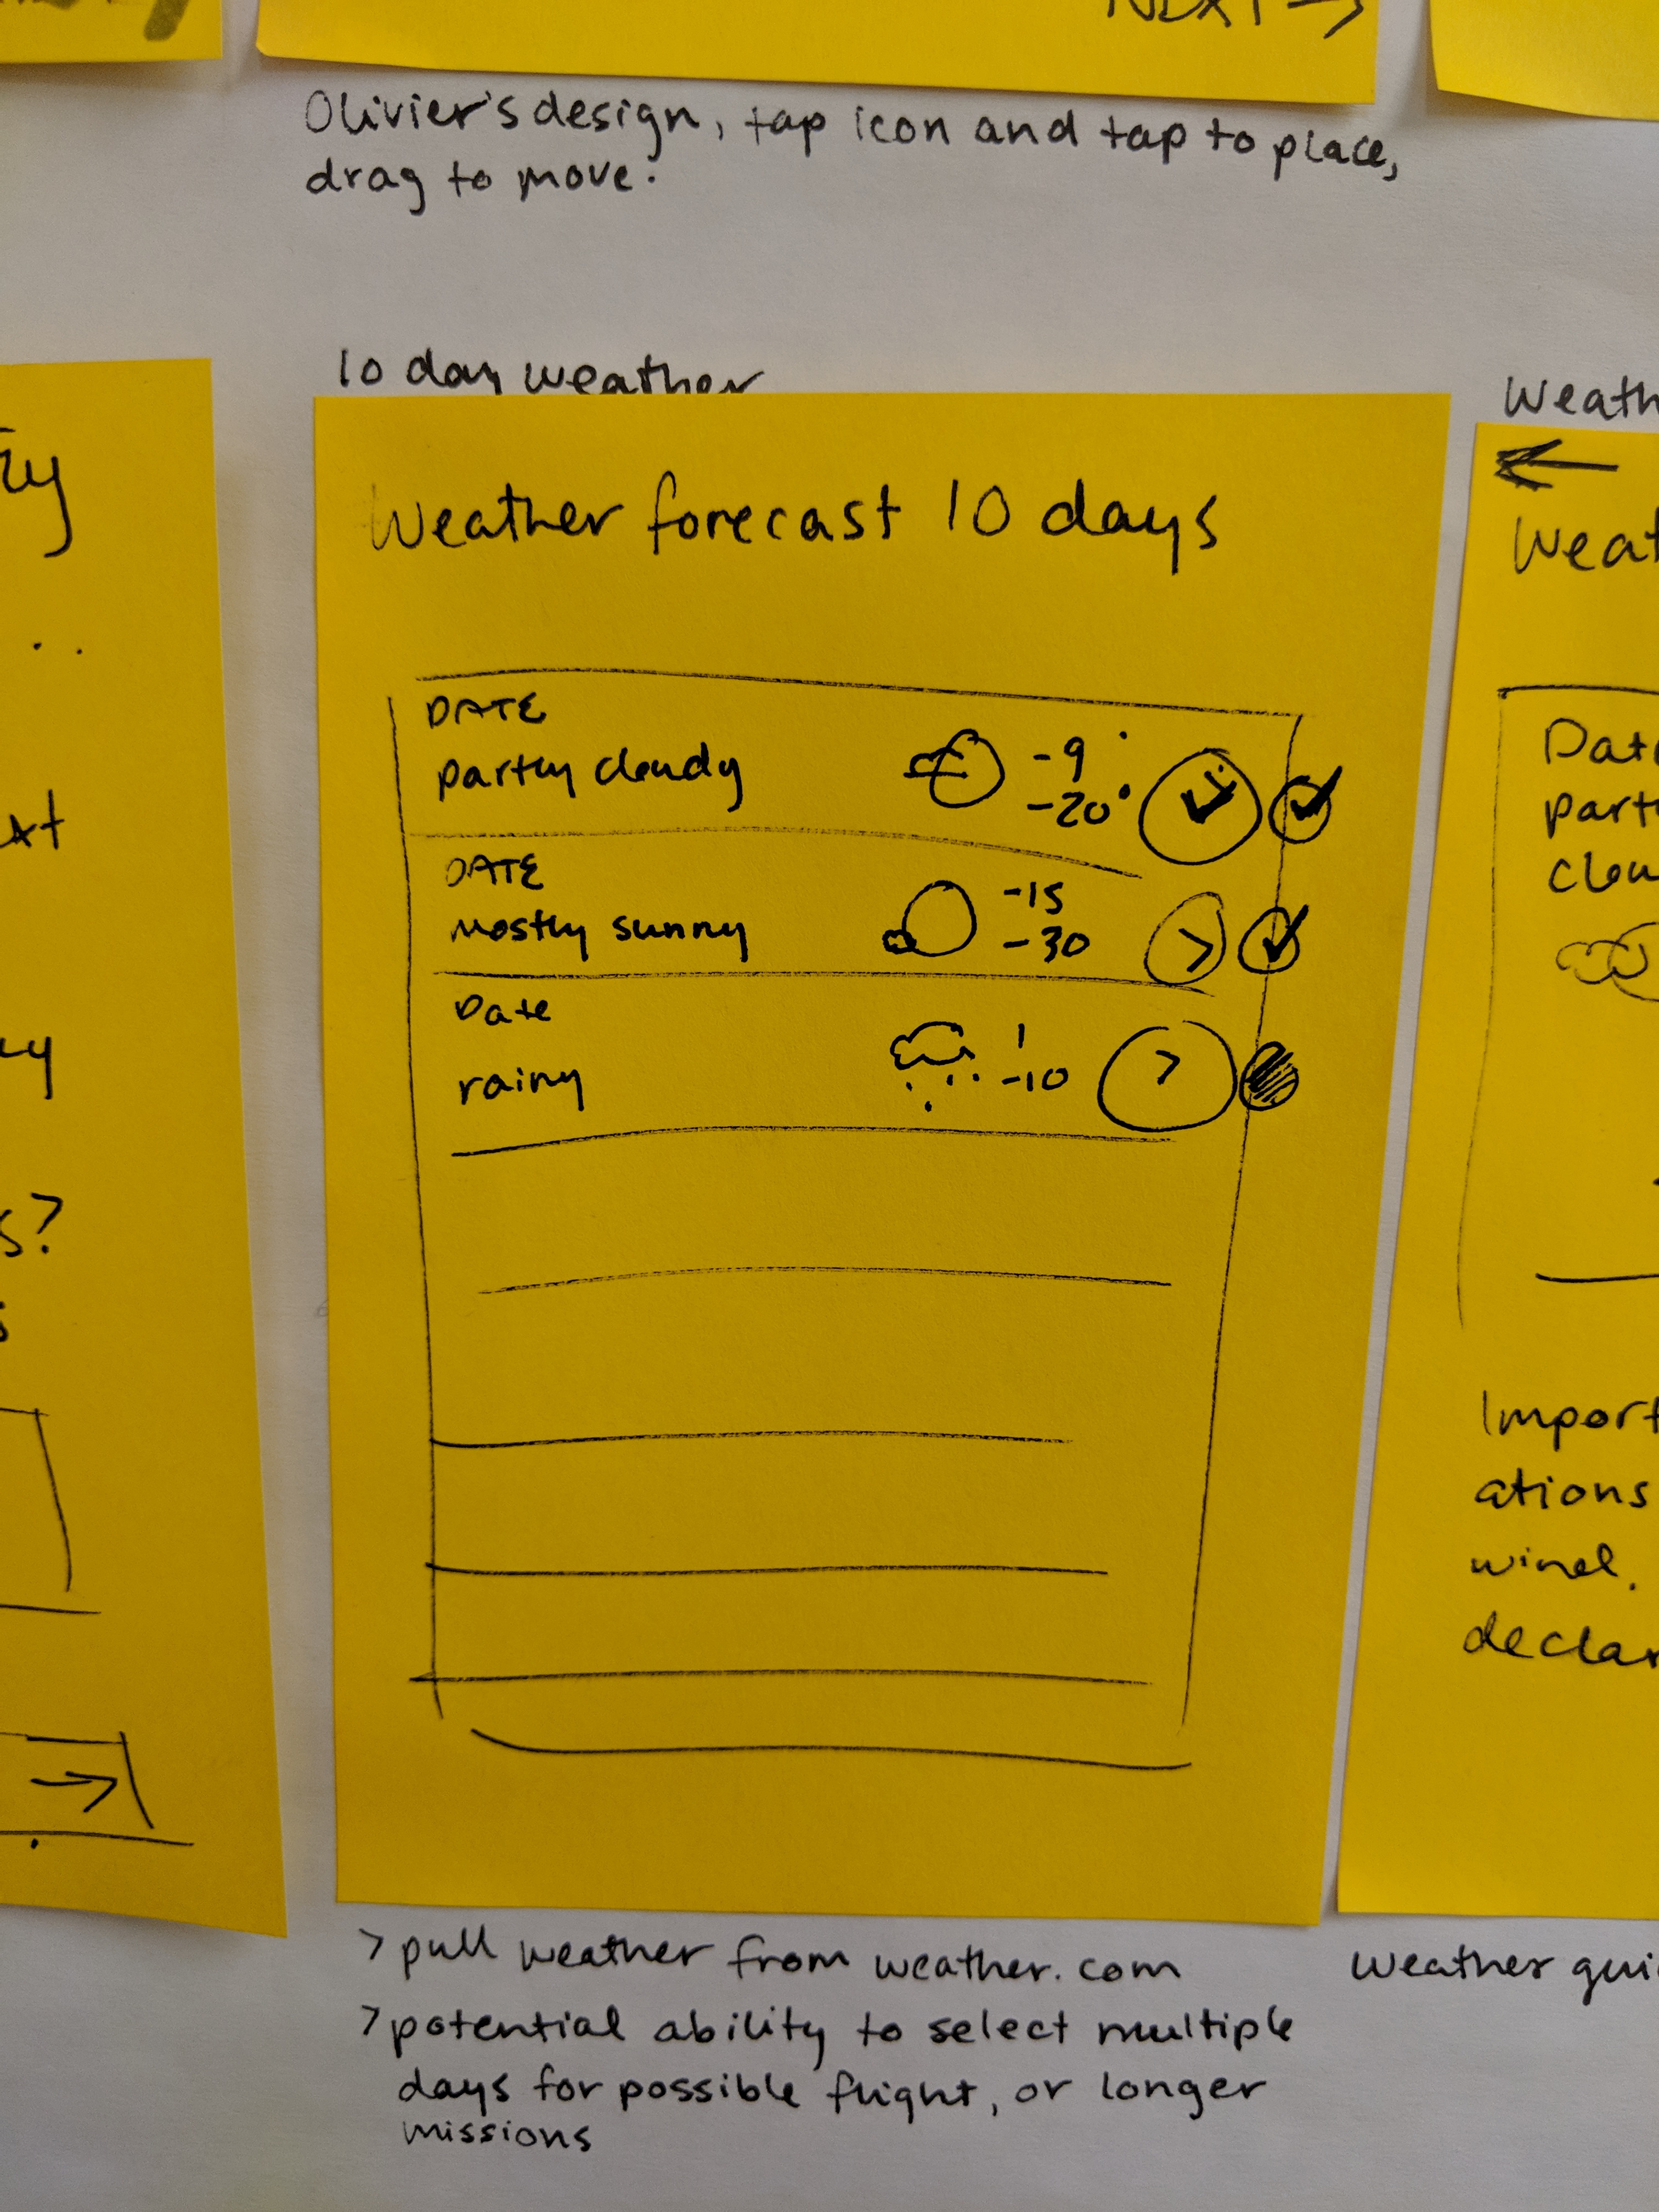 NEXT →
Olivier's design, tap icon and tap to place,
drag to move.
10 day weather
Weather forecast 10 days
DATE
partly cloudy
-9°
-20°
DATE
mostly sunny
-15
-30
>
Date
rainy
1
-10
>
> pull weather from weather.com
> potential ability to select multiple
days for possible flight, or longer
missions
s?
→
Weath
←
Weat
Date
part
clou
Import
ations
wind.
declar
Weather gui